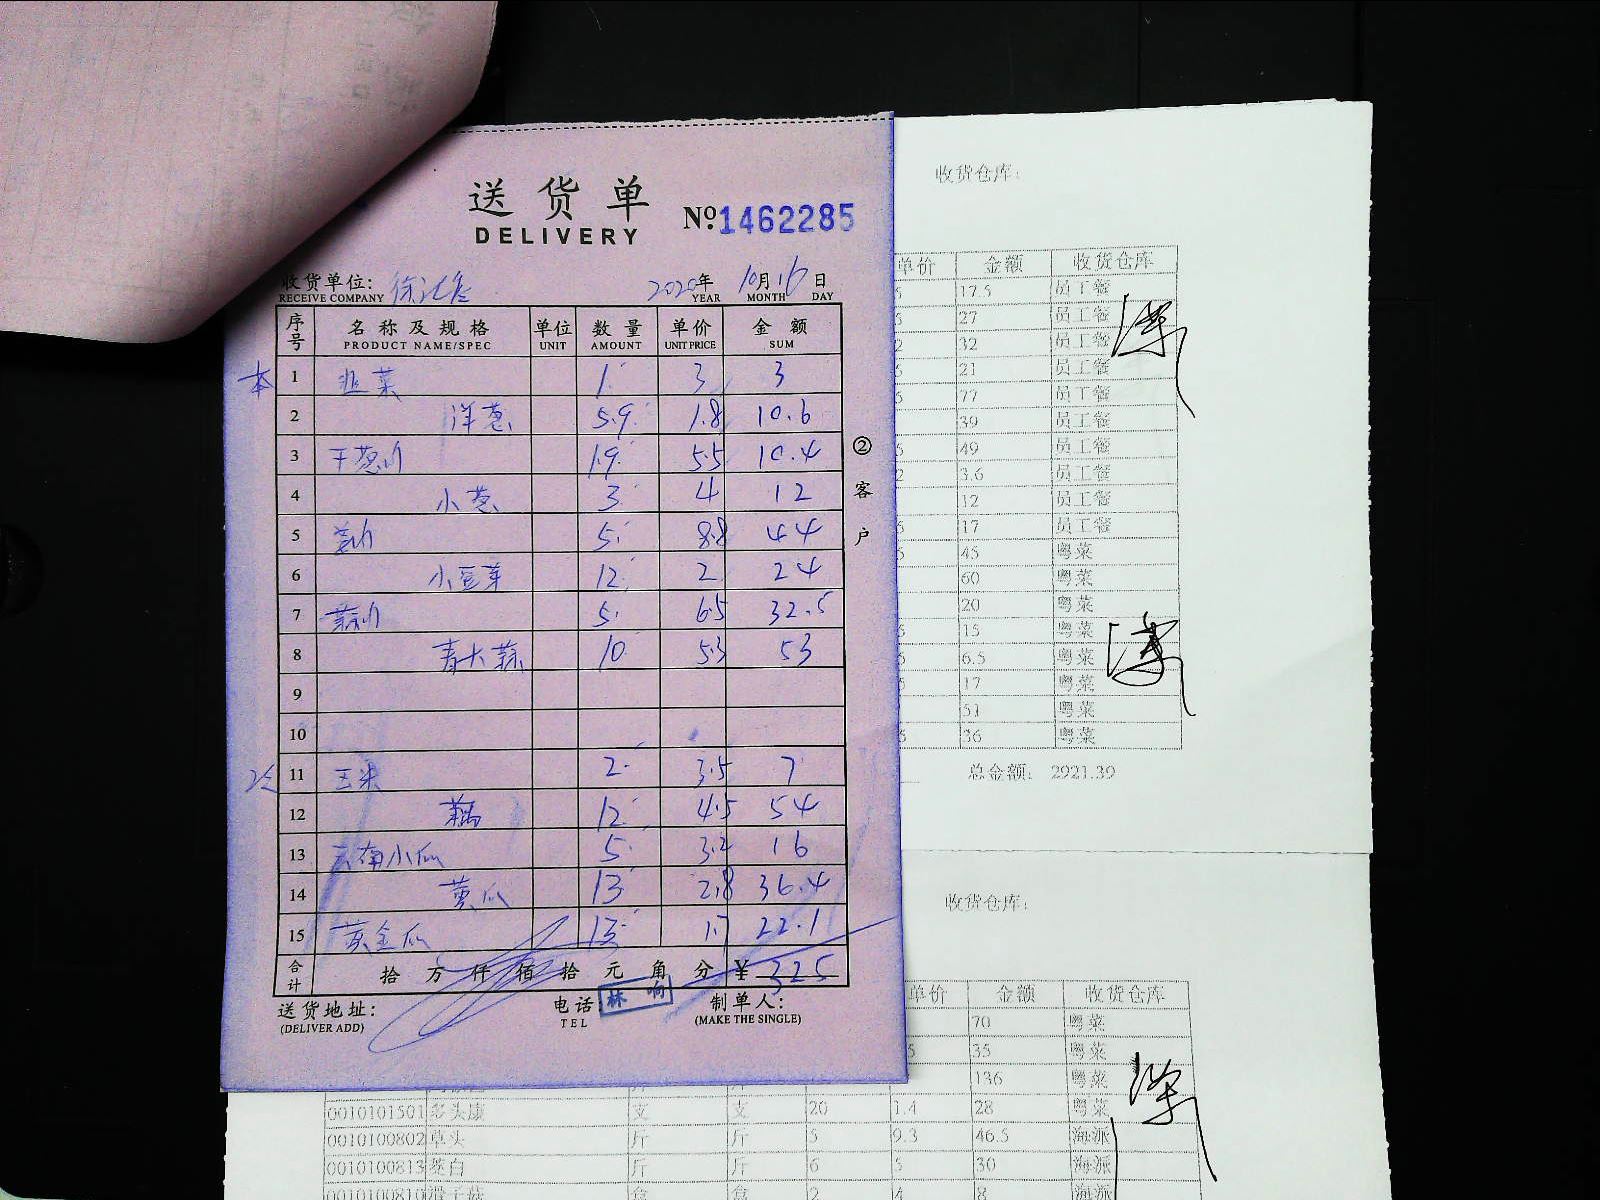 送货单
DELIVERY
№1462285
收货单位:
RECEIVE COMPANY
2020年 10月 16日
YEAR MONTH DAY
序号 名称及规格 单位 数量 单价 金额
PRODUCT NAME/SPEC UNIT AMOUNT UNIT PRICE SUM
本 1 韭菜 1 3 3
2 洋葱 5.9 1.8 10.6
3 干葱 1.9 5.5 10.4
4 小葱 3 4 12
5 5 8.8 44
6 小豆芽 12 2 24
7 5 6.5 32.5
8 青大蒜 10 5.3 53
9
10
11 玉米 2 3.5 7
12 藕 12 4.5 54
13 云南小瓜 5 3.2 16
14 黄瓜 13 2.8 36.4
15 黄金瓜 13 1.7 22.1
合计 拾 万 仟 佰 拾 元 角 分 ¥ 325
送货地址:
(DELIVER ADD)
电话:
TEL
林 响
制单人:
(MAKE THE SINGLE)
②客户
收货仓库:
单价 金额 收货仓库
17.5 员工餐
27 员工餐
32 员工餐
21 员工餐
77 员工餐
39 员工餐
49 员工餐
3.6 员工餐
12 员工餐
17 员工餐
45 粤菜
60 粤菜
20 粤菜
15 粤菜
6.5 粤菜
17 粤菜
51 粤菜
36 粤菜
总金额: 2921.39
收货仓库:
单价 金额 收货仓库
70 粤菜
35 粤菜
136 粤菜
0010101501 多头康 支 支 20 1.4 28 粤菜
0010100802 草头 斤 斤 5 9.3 46.5 海派
0010100813 茭白 斤 斤 6 5 30 海派
盒 盒 2 4 8 海派